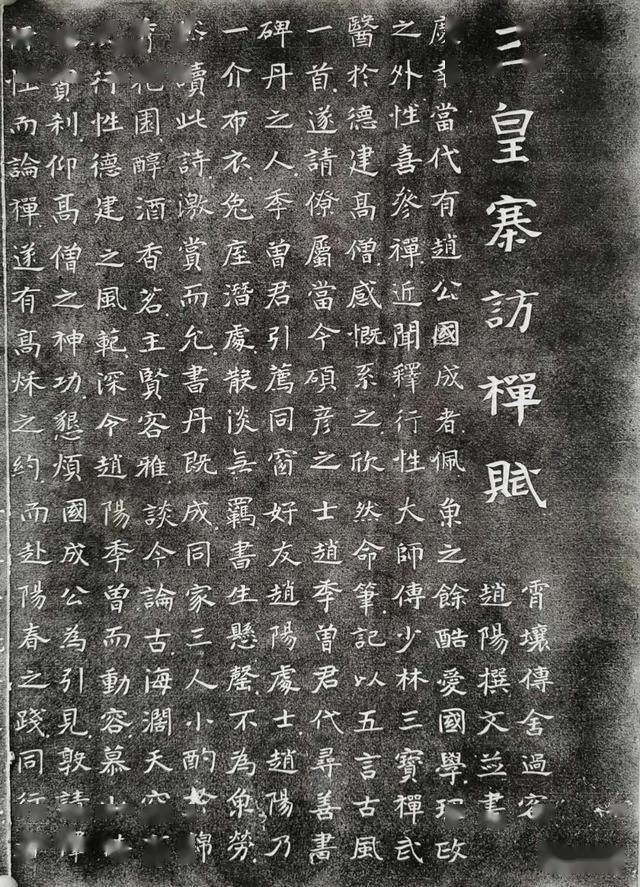 三皇寨訪禪賦
霄壤傳舍過客
趙陽撰文並書
當代有趙公國成者佩之餘酷愛國學理政
之外性喜參禪近聞釋行性大師傳少林三寶禪武
醫於德建高僧感慨系之欣然命筆記以五言古風
一首遂請僚屬當今碩彥之士趙季曾君代尋善書
碑丹之人季曾君引薦同窗好友趙陽處士趙陽乃
一介布衣兔座潛處散淡無羈書生懸罄不為勞
讀此詩激賞而允書丹既成同家三人小酌於錦
花園醇酒香茗主賢客雅談今論古海濶天空
行性德建之風範深令趙陽季曾而動容慕
利仰高僧之神功懇煩國成公為引見敦請
性而論禪遂有高秌之約而赴陽春之踐同行